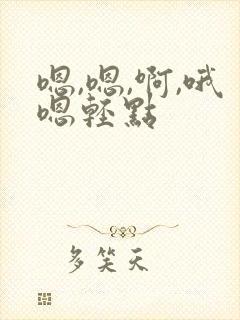 嗯,嗯,啊,哦
嗯轻點
多笑天